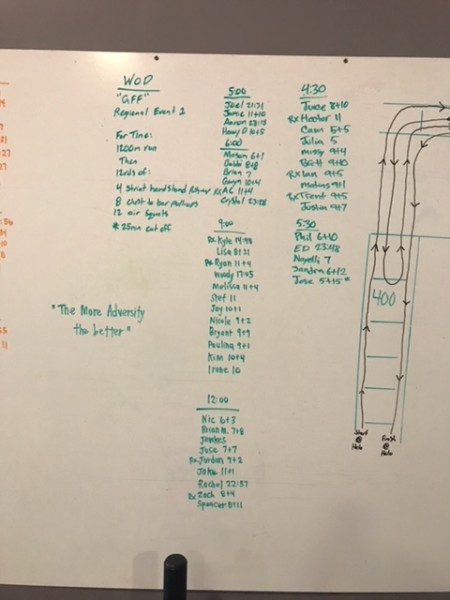 WOD
"GFF"
Regional Event 2
For Time:
1200m run
Then
12 rds of:
4 strict handstand
8 chest to bar pullups
12 air squats
* 25min cut off
"The More Adversity
the better"
5:00
Joel 21:21
Jamie 11+10
Aaron 23:13
Henry D 10+5
6:00
Mason 6+1
Gabbi 8+8
Brian 7
Gwyn 10+4
Rx AC 11+9
Crystal 23:28
9:00
Rx Kyle 19:48
Lisa 21:21
Rx Ryan 11+4
Woody 17:05
Melissa 11+4
Stef 11
Joy 10+1
Nicole 9+2
Bryant 9+9
Paulina 9+1
Kim 10+4
Irene 10
12:00
Nic 6+3
Brian M 7+8
James
Jose 7+7
Rx Jordan 9+2
Jake 11+1
Rachel 22:37
Rx Zach 8+4
Spencer 8+11
4:30
8+10
Rx Hector 11
Cass 5+5
Julia 5
Missy 9+4
Britt 9+10
Rx Ian 9+5
9+1
Rx Trent 9+5
Justin 9+7
5:30
Phil 6+10
ED 23:48
Nayelli 7
Sandra 6+2
Jose 5+5*
400
Start
@
Finish
@